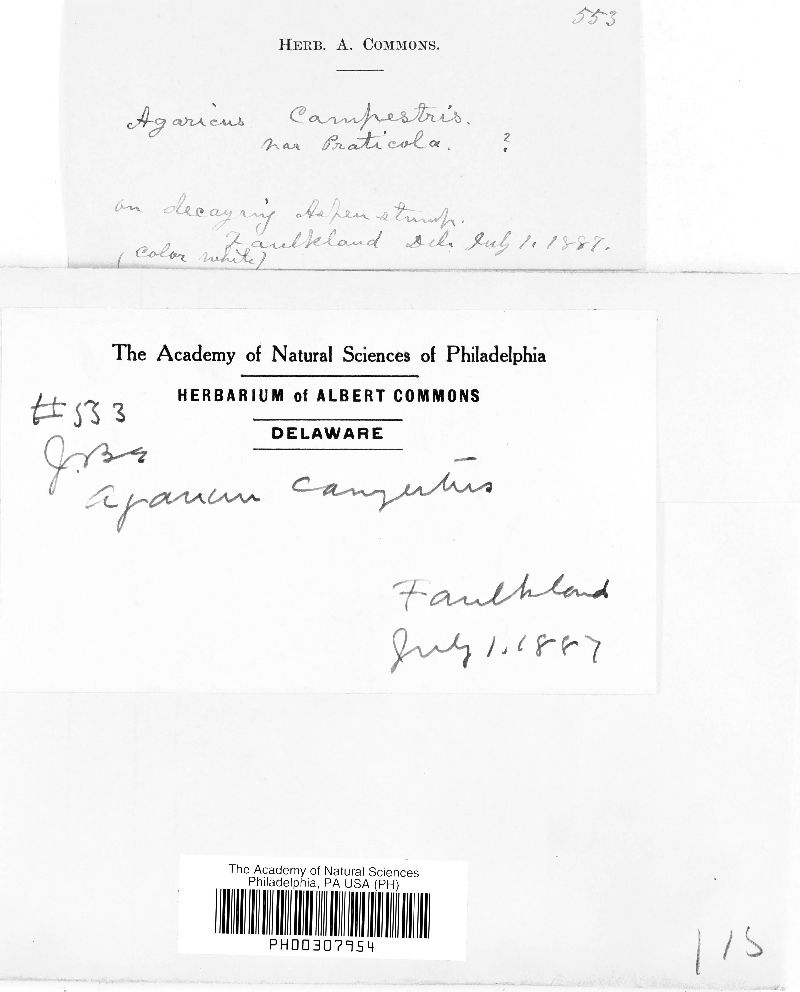 553
HERB. A. COMMONS.
Agaricus Campestris.
var Praticola. ?
on decaying Aspen stump.
Faulkland Del. July 1. 1887.
(color white)
The Academy of Natural Sciences of Philadelphia
HERBARIUM of ALBERT COMMONS
DELAWARE
#553
J.B.E
Agaricus campestris
Faulkland
July 1. 1887
The Academy of Natural Sciences
Philadelphia, PA USA (PH)
PH00307954
115